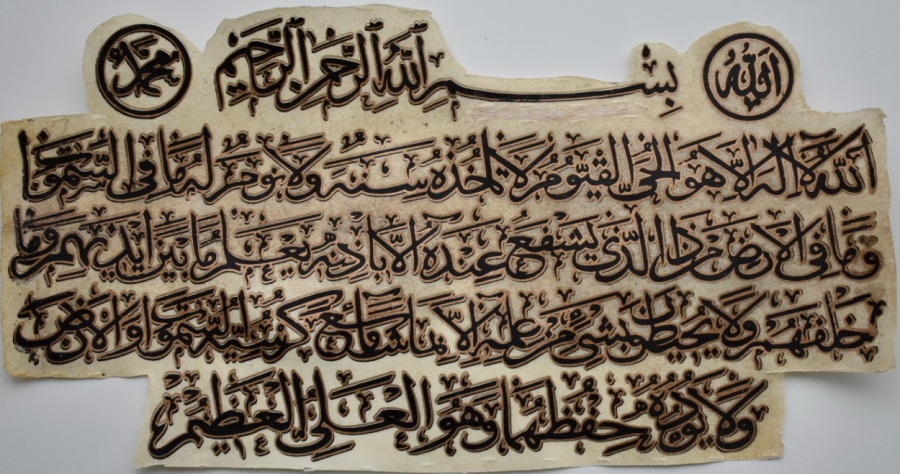 الله
بسم الله الرحمن الرحيم
محمد
الله لا اله الا هو الحي القيوم لا تاخذه سنة ولا نوم له ما في السموات
وما في الارض من ذا الذي يشفع عنده الا باذنه يعلم ما بين ايديهم وما
خلفهم ولا يحيطون بشيء من علمه الا بما شاء وسع كرسيه السموات والارض
ولا يؤده حفظهما وهو العلي العظيم